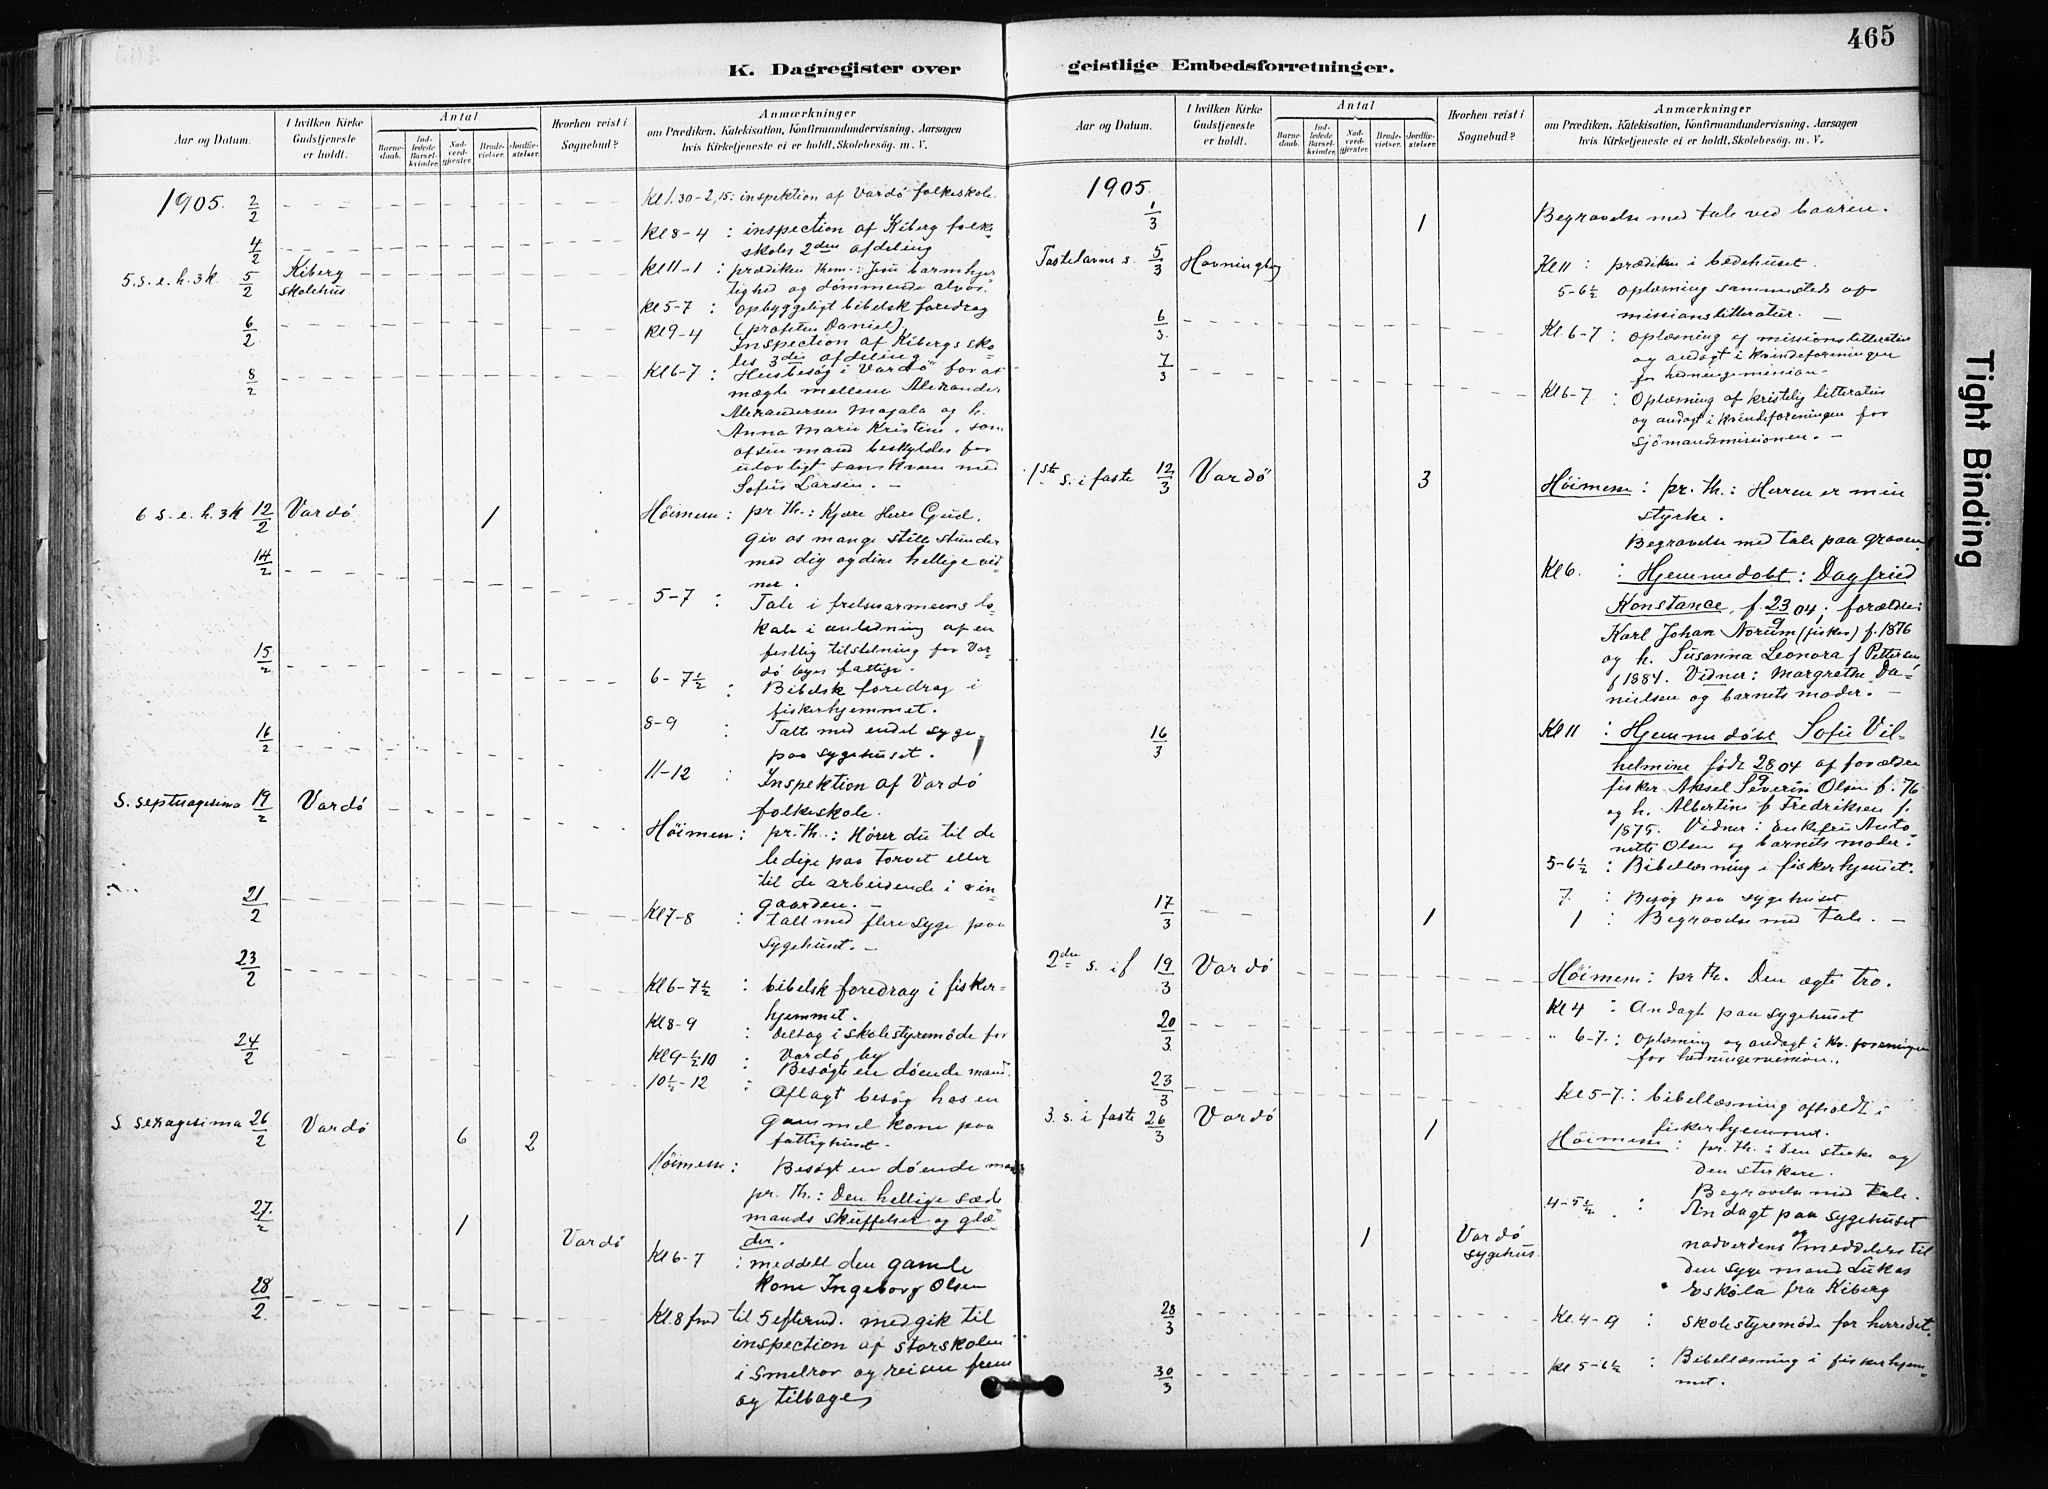 465
K. Dagregister over
geistlige Embedsforretninger.
Aar og Datum.
I hvilken Kirke
Gudstjeneste
er holdt.
Antal
Barne-
daab.
Ind-
ledede
Barsel-
kvinder.
Nad-
verd-
gjester.
Brude-
vielser.
Jordfæ-
stelser.
Hvorhen reist i
Sognebud?
Anmærkninger
om Prædiken, Katekisation, Konfirmandundervisning. Aarsagen
hvis Kirketjeneste ei er holdt. Skolebesøg. m. V.
1905. 2/2
Kl 1.30-2,15: inspektion af Vardö folkeskole.
4/2
Kl 8-4 : inspection af Kiberg folke
skoles 2den afdeling
5. s. e. h. 3 k. 5/2 Kiberg
skolehus
Kl 11-1 : prædiken them.: Jesu barmhjer
tighed og dømmende alvor.
Kl 5-7 : opbyggeligt bibelsk foredrag
(profeten Daniel)
6/2
Kl 9-4 Inspection af Kibergs sko-
les 3die afdeling
8/2
Kl 6-7 : Husbesög i Vardö for at
mægle mellem Alexander
Alexandersen Majala og h.
Anna Marie Kristine, som
af sin mand beskyldes for
ulovligt samkvem med
Sofus Larsen. —
6 s. e. h. 3 k 12/2 Vardö 1
Höimesse : pr. th.: Kjære Herre Gud,
giv os mange stille stunder
med dig og dine hellige vid-
ner.
14/2
5-7 : Tale i frelsesarmeens lo-
kale i anledning af en
festlig tilstelning for Var-
dö byes fattige.
15/2
6-7½ : Bibelsk foredrag i
fiskerhjemmet.
8-9 : Talt med endel syge
paa sygehuset.
16/2
11-12 : Inspektion af Vardö
folkeskole.
S. septuagesima 19/2 Vardö
Höimesse : pr. th.: Hører du til de
ledige paa torvet eller
til de arbeidende i vin
gaarden. —
21/2
Kl 7-8 : talt med flere syge paa
sygehuset. —
23/2
Kl 6-7½ : bibelsk foredrag i fisker-
hjemmet.
Kl 8-9 : deltog i skolestyremöde for
Vardö by
24/2
Kl 9-½10 : Besögte en döende mand.
10½-12 : Aflagt besög hos en
gammel kone paa
fattighuset.
S. sexagesima 26/2 Vardö 6 2
Höimesse : Besögt en döende mand
pr. th.: Den hellige sæde
mands skuffelser og glæ-
der.
27/2 1 Vardö
Kl 6-7 : meddelt den gamle
kone Ingeborg Olsen
28/2
Kl. 8 fmd til 5 eftermd. medgik til
inspection af storskolen
i Smelror og reisen frem
og tilbage
Aar og Datum.
I hvilken Kirke
Gudstjeneste
er holdt.
Antal
Barne-
daab.
Ind-
ledede
Barsel-
kvinder.
Nad-
verd-
gjester.
Brude-
vielser.
Jordfæ-
stelser.
Hvorhen reist i
Sognebud?
Anmærkninger
om Prædiken, Katekisation, Konfirmandundervisning. Aarsagen
hvis Kirketjeneste ei er holdt. Skolebesøg. m. V.
1905.
1/3 1 Begravelse med tale ved baaren.
Fastelavns s. 5/3 Havningberg
Kl 11 : prædiken i bedehuset.
5-6½ oplæsning sammesteds af
missionslitteratur. —
6/3
Kl. 6-7 : oplæsning af missionslitteratur
og andagt i kvindeforeningen
for hedningemission.
7/3
Kl 6-7 : Oplæsning af kristelig litteratur
og andagt i kvindeforeningen for
sjömandsmissionen. —
1ste s. i faste 12/3 Vardö 3
Höimesse : pr. th.: Herren er min
styrke.
Begravelse med tale paa graven.
Kl 6. : Hjemmedöbt : Dagfried
Konstance, f. 23/9 04; forældre:
Karl Johan Norum (fisker) f. 1876
og h. Susanna Leonora f Pettersen
f 1884. Vidner: Margrethe Da-
nielsen og barnets moder. —
16/3
Kl 11 : Hjemmedöbt Sofie Vil-
helmine födt 28/9 04 af forældre
fisker Aksel Severin Olsen f. 76
og h. Albertine f Fredriksen f.
1875. Vidner: Enkefru Anto-
nette Olsen og barnets moder.
5-6½ : Bibellæsning i fiskerhjemmet.
7. : Besög paa sygehuset
17/3 1
1 : Begravelse med tale. —
2den s. i f 19/3 Vardö
Höimesse : pr th. Den ægte tro.
Kl 4 : Andagt paa sygehuset
20/3
" 6-7. : Oplæsning og andagt i kv. foreningen
for hedningemission.
23/3
Kl 5-7. : bibellæsning afholdt i
fiskerhjemmet.
3. s. i faste 26/3 Vardö 1
Höimesse : pr. th.: den sterke og
den sterkere.
Begravelse med tale.
4-5½ : Andagt paa sygehuset
og
nadverdens meddelelse til
1 Vardö
sygehus.
den syge mand Lukas
Eskøla fra Kiberg
28/3
Kl 4-9 : skolestyremöde for herredet.
30/3
Kl 5-6½ : Bibellæsning i fiskerhjem-
met.
Tight Binding